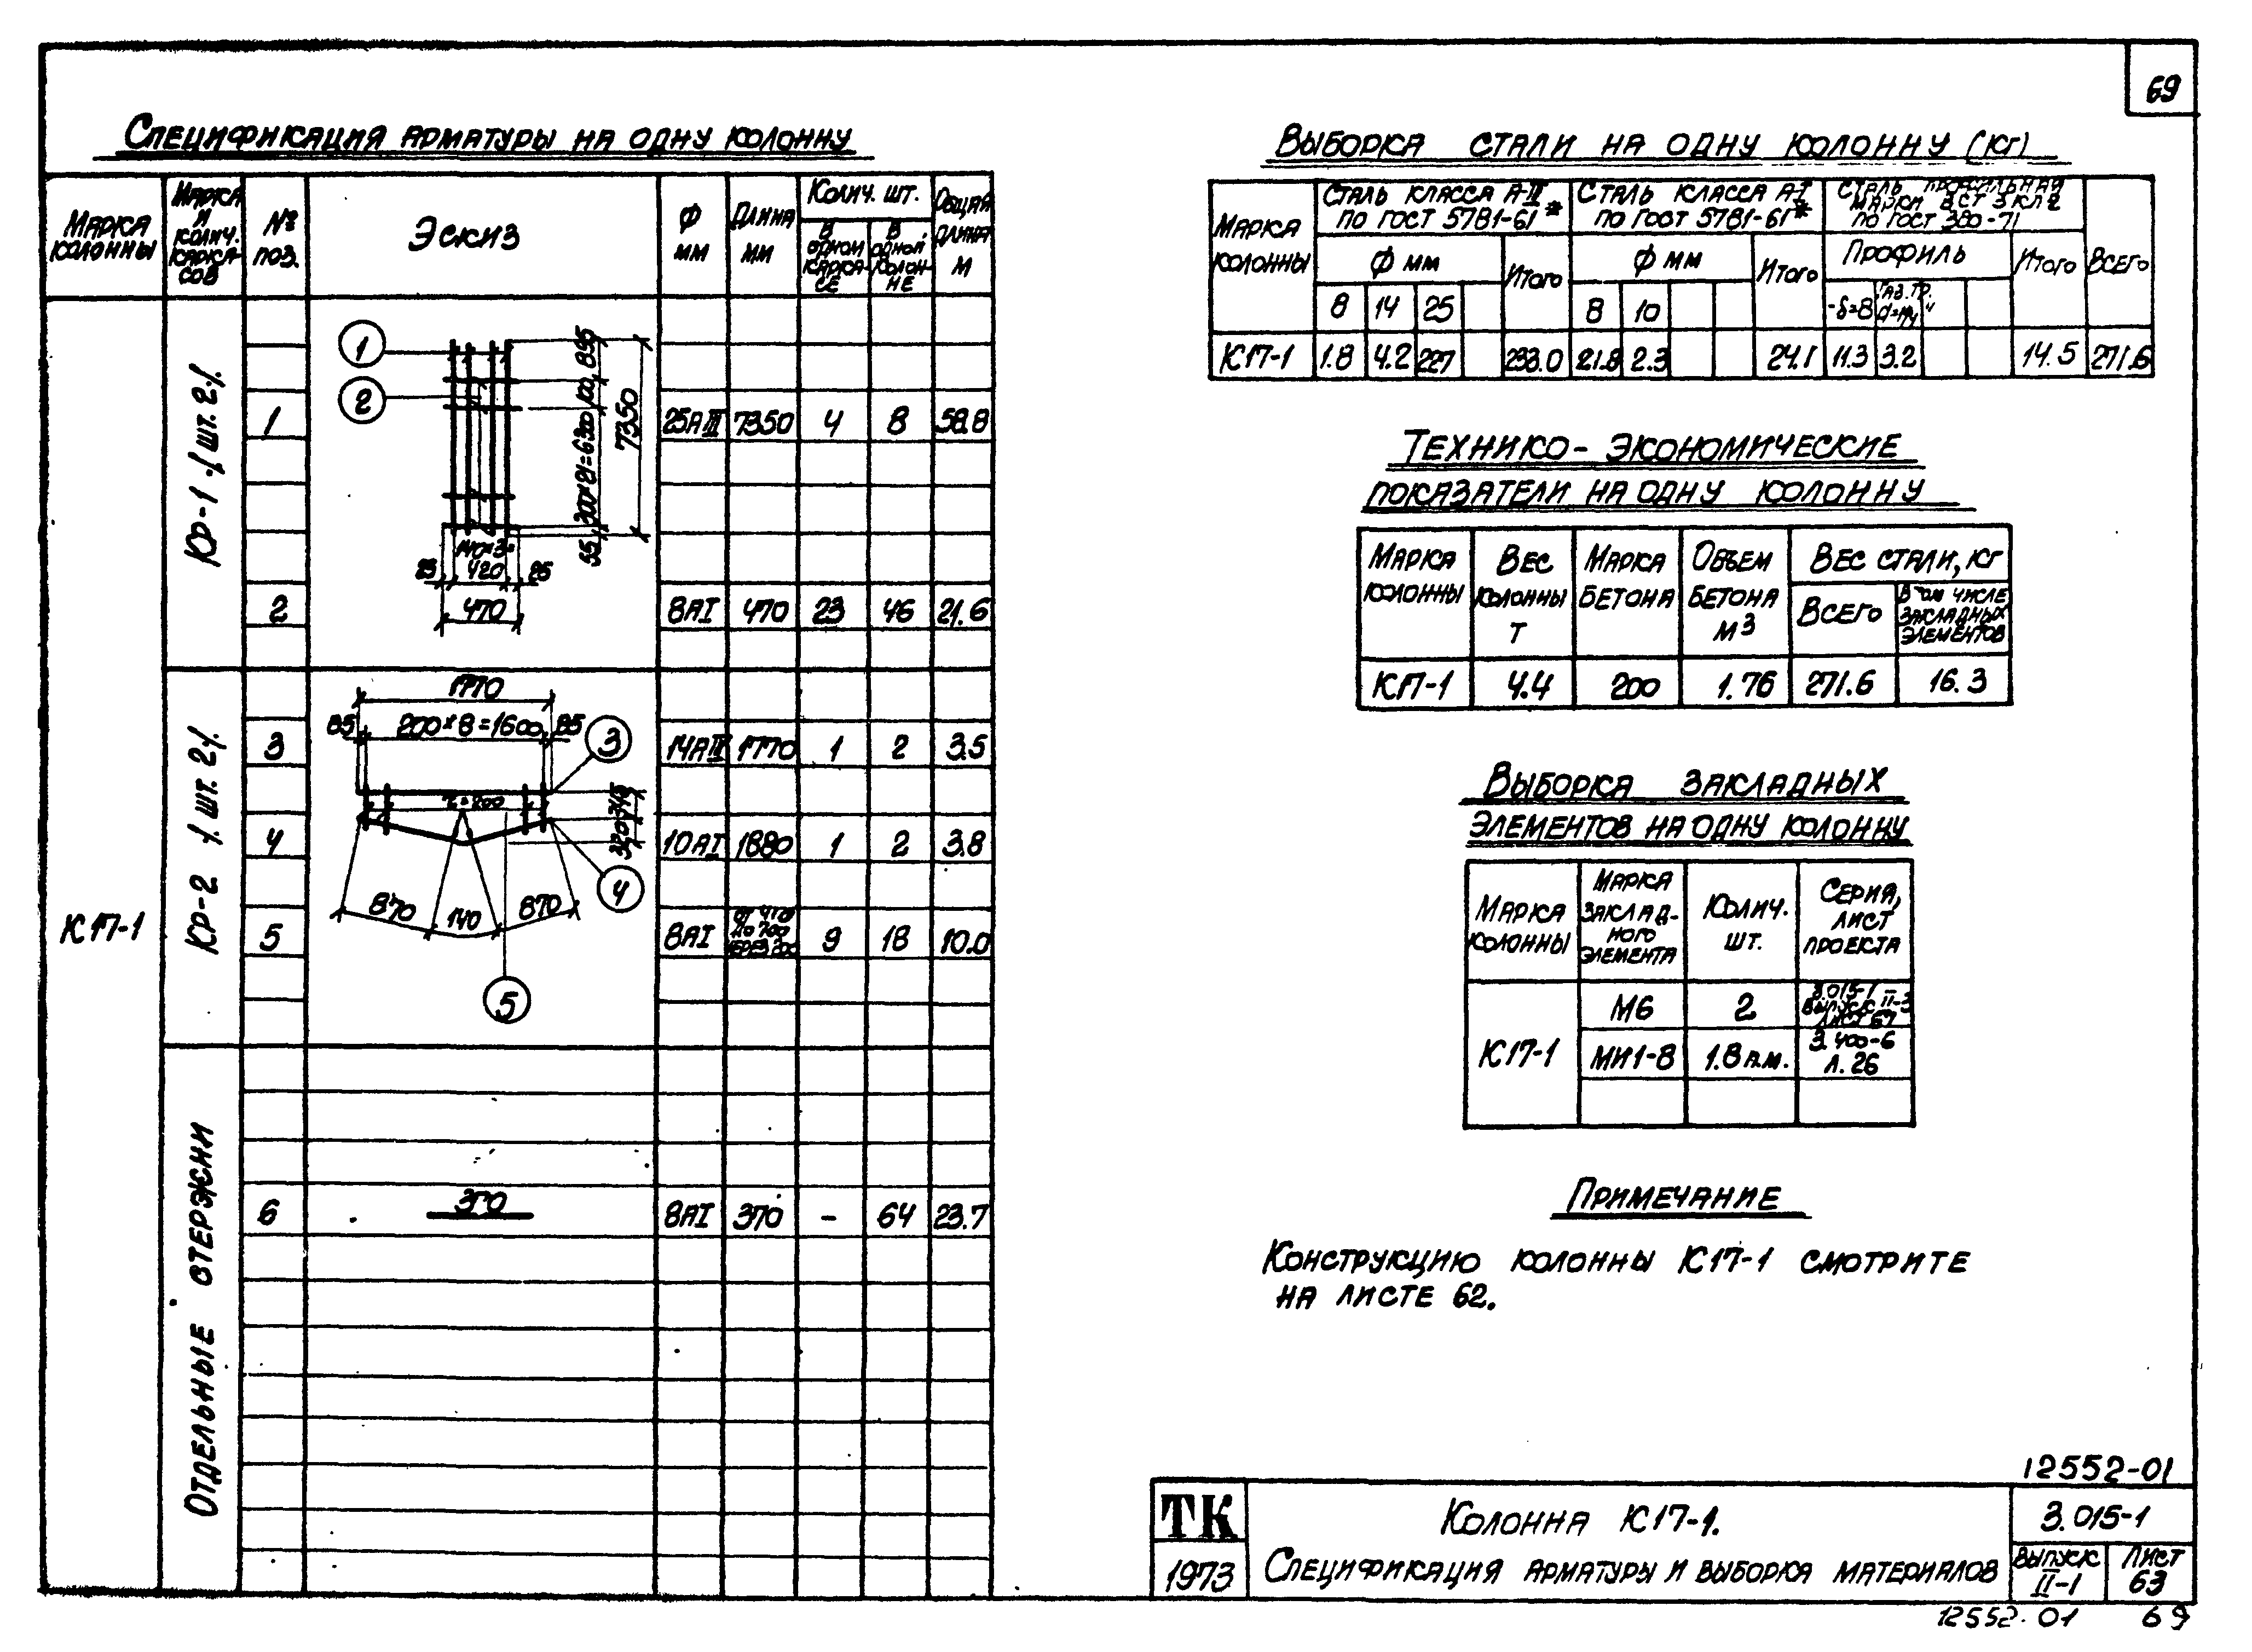 69
Спецификация арматуры на одну колонну
Марка колонны
Марка и колич. каркасов
№ поз.
Эскиз
Ф мм
Длина мм
Колич. шт.
В одном каркасе
В одной колонне
Общая длина м
К17-1
КР-1 /шт. 2/
1
2
895
100
200×21=6300
55
7350
140×3=
420
25
25
470
1 25АIII 7350 4 8 58.8
2 8АI 470 23 46 21.6
КР-2 /шт. 2/
1770
85 200×8=1600 85
3
4
5
870 140 870
3 14АIII 1770 1 2 3.5
4 10АI 1880 1 2 3.8
5 8АI 9 18 10.0
Отдельные стержни
6 370 8АI 370 - 64 23.7
Выборка стали на одну колонну (кг)
Марка колонны
Сталь класса А-III по ГОСТ 5781-61*
Сталь класса А-I по ГОСТ 5781-61*
Сталь профильная марки ВСТ 3 кп 2 по ГОСТ 380-71
Всего
Ф мм Итого
Ф мм Итого
Профиль Итого
8 14 25
8 10
-δ=8 Газ. тр.
К17-1 1.8 4.2 227 233.0 21.8 2.3 24.1 11.3 3.2 14.5 271.6
Технико-экономические
показатели на одну колонну
Марка колонны
Вес колонны т
Марка бетона
Объем бетона м3
Вес стали, кг
Всего
В том числе закладных элементов
К17-1 4.4 200 1.76 271.6 16.3
Выборка закладных
элементов на одну колонну
Марка колонны
Марка закладного элемента
Колич. шт.
Серия, лист проекта
К17-1
М6 2 3.015-1 Выпуск II-3 Лист 67
МИ1-8 1.8 п.м. 3.400-6 л. 26
Примечание
Конструкцию колонны К17-1 смотрите
на листе 62.
12552-01
ТК
1973
Колонна К17-1.
Спецификация арматуры и выборка материалов
3.015-1
Выпуск II-1
Лист 63
12552-01 69